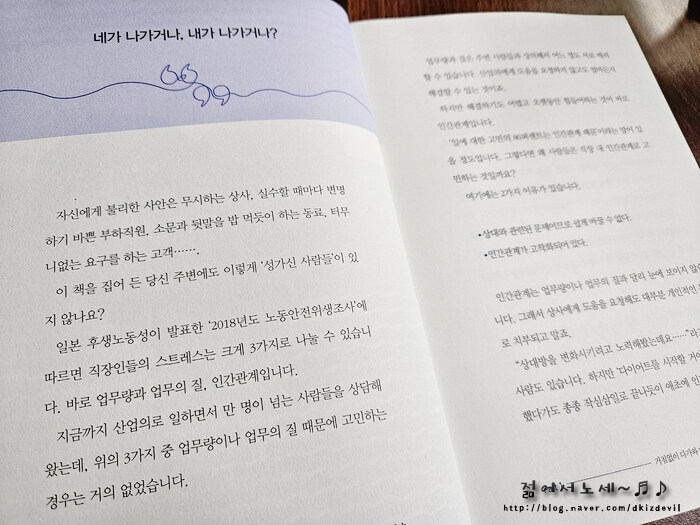 네가 나가거나, 내가 나가거나?
자신에게 불리한 사안은 무시하는 상사, 실수할 때마다 변명
하기 바쁜 부하직원, 소문과 뒷말을 밥 먹듯이 하는 동료, 터무
니없는 요구를 하는 고객…….
이 책을 집어 든 당신 주변에도 이렇게 ‘성가신 사람들’이 있
지 않나요?
일본 후생노동성이 발표한 ‘2018년도 노동안전위생조사’에
따르면 직장인들의 스트레스는 크게 3가지로 나눌 수 있습니
다. 바로 업무량과 업무의 질, 인간관계입니다.
지금까지 산업의로 일하면서 만 명이 넘는 사람들을 상담해
왔는데, 위의 3가지 중 업무량이나 업무의 질 때문에 고민하는
경우는 거의 없었습니다.
업무량과 질은 주변 사람들과 상의해서 어느 정도 서로
할 수 있습니다. 산업의에게 도움을 요청하지 않고도 얼마든지
해결할 수 있는 것이죠.
하지만 해결하기도 어렵고 오랫동안 힘들어하는 것이 바로
인간관계입니다.
‘일에 대한 고민의 80퍼센트는 인간관계 때문’이라는 말이 있
을 정도입니다. 그렇다면 왜 사람들은 직장 내 인간관계로 고
민하는 것일까요?
여기에는 2가지 이유가 있습니다.
•상대와 관련된 문제이므로 쉽게 바꿀 수 없다.
•인간관계가 고착화되어 있다.
인간관계는 업무량이나 업무의 질과 달리 눈에 보이지 않습
니다. 그래서 상사에게 도움을 요청해도 대부분 개인적인
로 치부되고 말죠.
“상대방을 변화시키려고 노력해봤는데요……”라
사람도 있습니다. 하지만 ‘다이어트를 시작할 거야
했다가도 종종 작심삼일로 끝나듯이 애초에 인
거침없이 다가와
젊에서노세~♬♪
http://blog.naver.com/dkizdevil